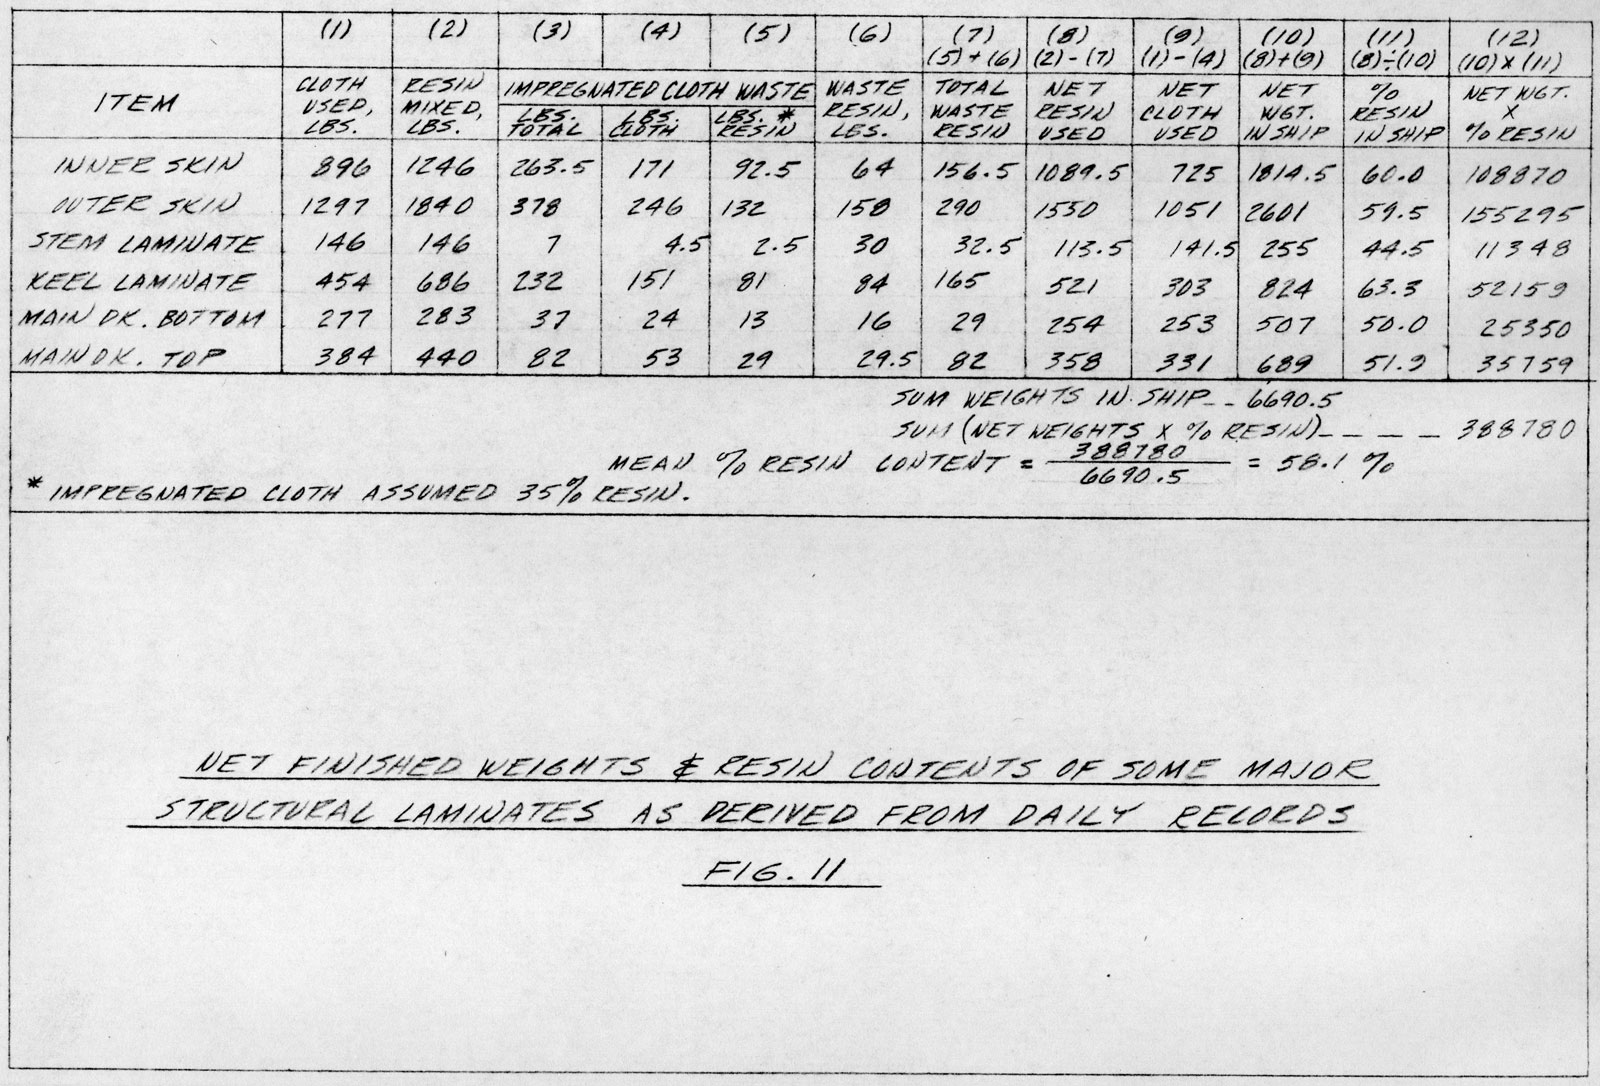 (1) (2) (3) (4) (5) (6) (7) (8) (9) (10) (11) (12)
(5)+(6) (2)-(7) (1)-(4) (8)+(9) (8)÷(10) (10)X(11)
ITEM CLOTH USED, LBS. RESIN MIXED, LBS. IMPREGNATED CLOTH WASTE WASTE RESIN, LBS. TOTAL WASTE RESIN NET RESIN USED NET CLOTH USED NET WGT. IN SHIP % RESIN IN SHIP NET WGT. X % RESIN
LBS. TOTAL LBS. CLOTH LBS. * RESIN
INNER SKIN 896 1246 263.5 171 92.5 64 156.5 1089.5 725 1814.5 60.0 108870
OUTER SKIN 1297 1840 378 246 132 158 290 1550 1051 2601 59.5 155295
STEM LAMINATE 146 146 7 4.5 2.5 30 32.5 113.5 141.5 255 44.5 11348
KEEL LAMINATE 454 686 232 151 81 84 165 521 303 824 63.3 52159
MAIN DK. BOTTOM 277 283 37 24 13 16 29 254 253 507 50.0 25350
MAIN DK. TOP 384 440 82 53 29 29.5 82 358 331 689 51.9 35759
SUM WEIGHTS IN SHIP__6690.5
SUM (NET WEIGHTS X % RESIN)____388780
MEAN % RESIN CONTENT = 388780 / 6690.5 = 58.1 %
* IMPREGNATED CLOTH ASSUMED 35% RESIN.
NET FINISHED WEIGHTS & RESIN CONTENTS OF SOME MAJOR
STRUCTURAL LAMINATES AS DERIVED FROM DAILY RECORDS
FIG. 11